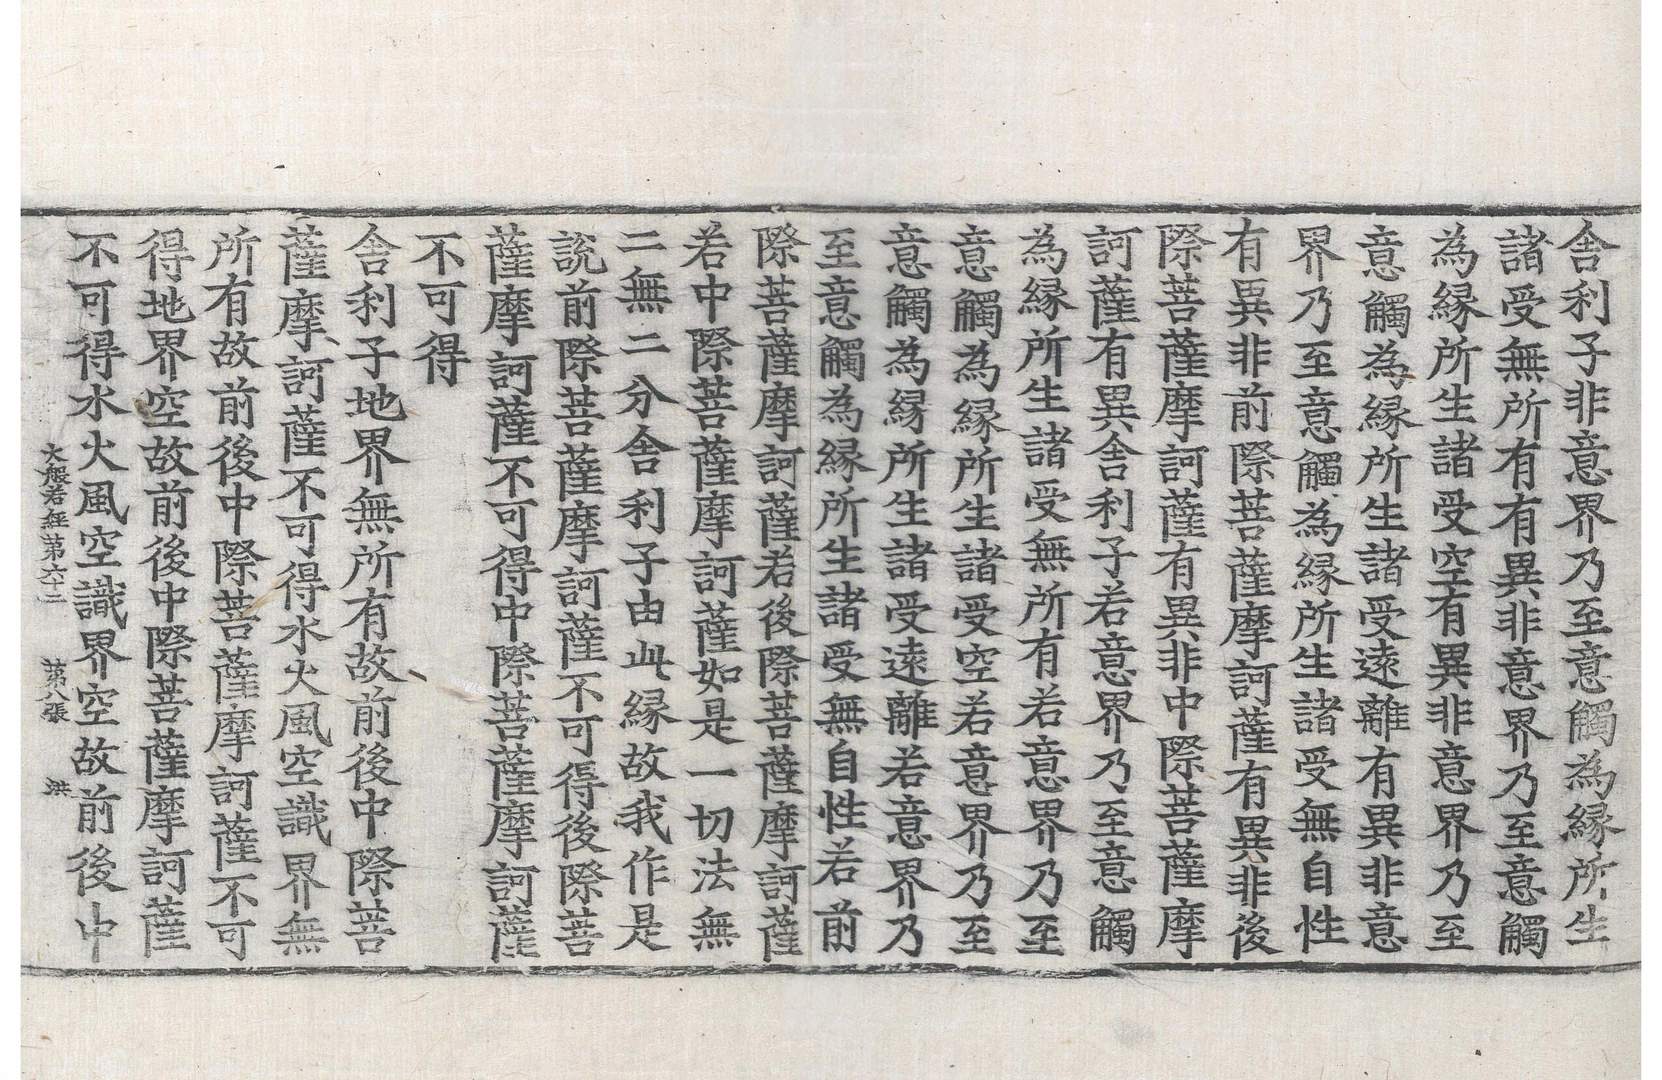 舎利子非意界乃至意觸為縁所生
諸受無所有有異非意界乃至意觸
為縁所生諸受空有異非意界乃至
意觸為縁所生諸受遠離有異非意
界乃至意觸為縁所生諸受無自性
有異非前際菩薩摩訶薩有異非後
際菩薩摩訶薩有異非中際菩薩摩
訶薩有異舎利子若意界乃至意觸
為縁所生諸受無所有若意界乃至
意觸為縁所生諸受空若意界乃至
意觸為縁所生諸受遠離若意界乃
至意觸為縁所生諸受無自性若前
際菩薩摩訶薩若後際菩薩摩訶薩
若中際菩薩摩訶薩如是一切法無
二無二分舎利子由此縁故我作是
說前際菩薩摩訶薩不可得後際菩
薩摩訶薩不可得中際菩薩摩訶薩
不可得
舎利子地界無所有故前後中際菩
薩摩訶薩不可得水火風空識界無
所有故前後中際菩薩摩訶薩不可
得地界空故前後中際菩薩摩訶薩
不可得水火風空識界空故前後中
大般若經第六十二 第八張 洪